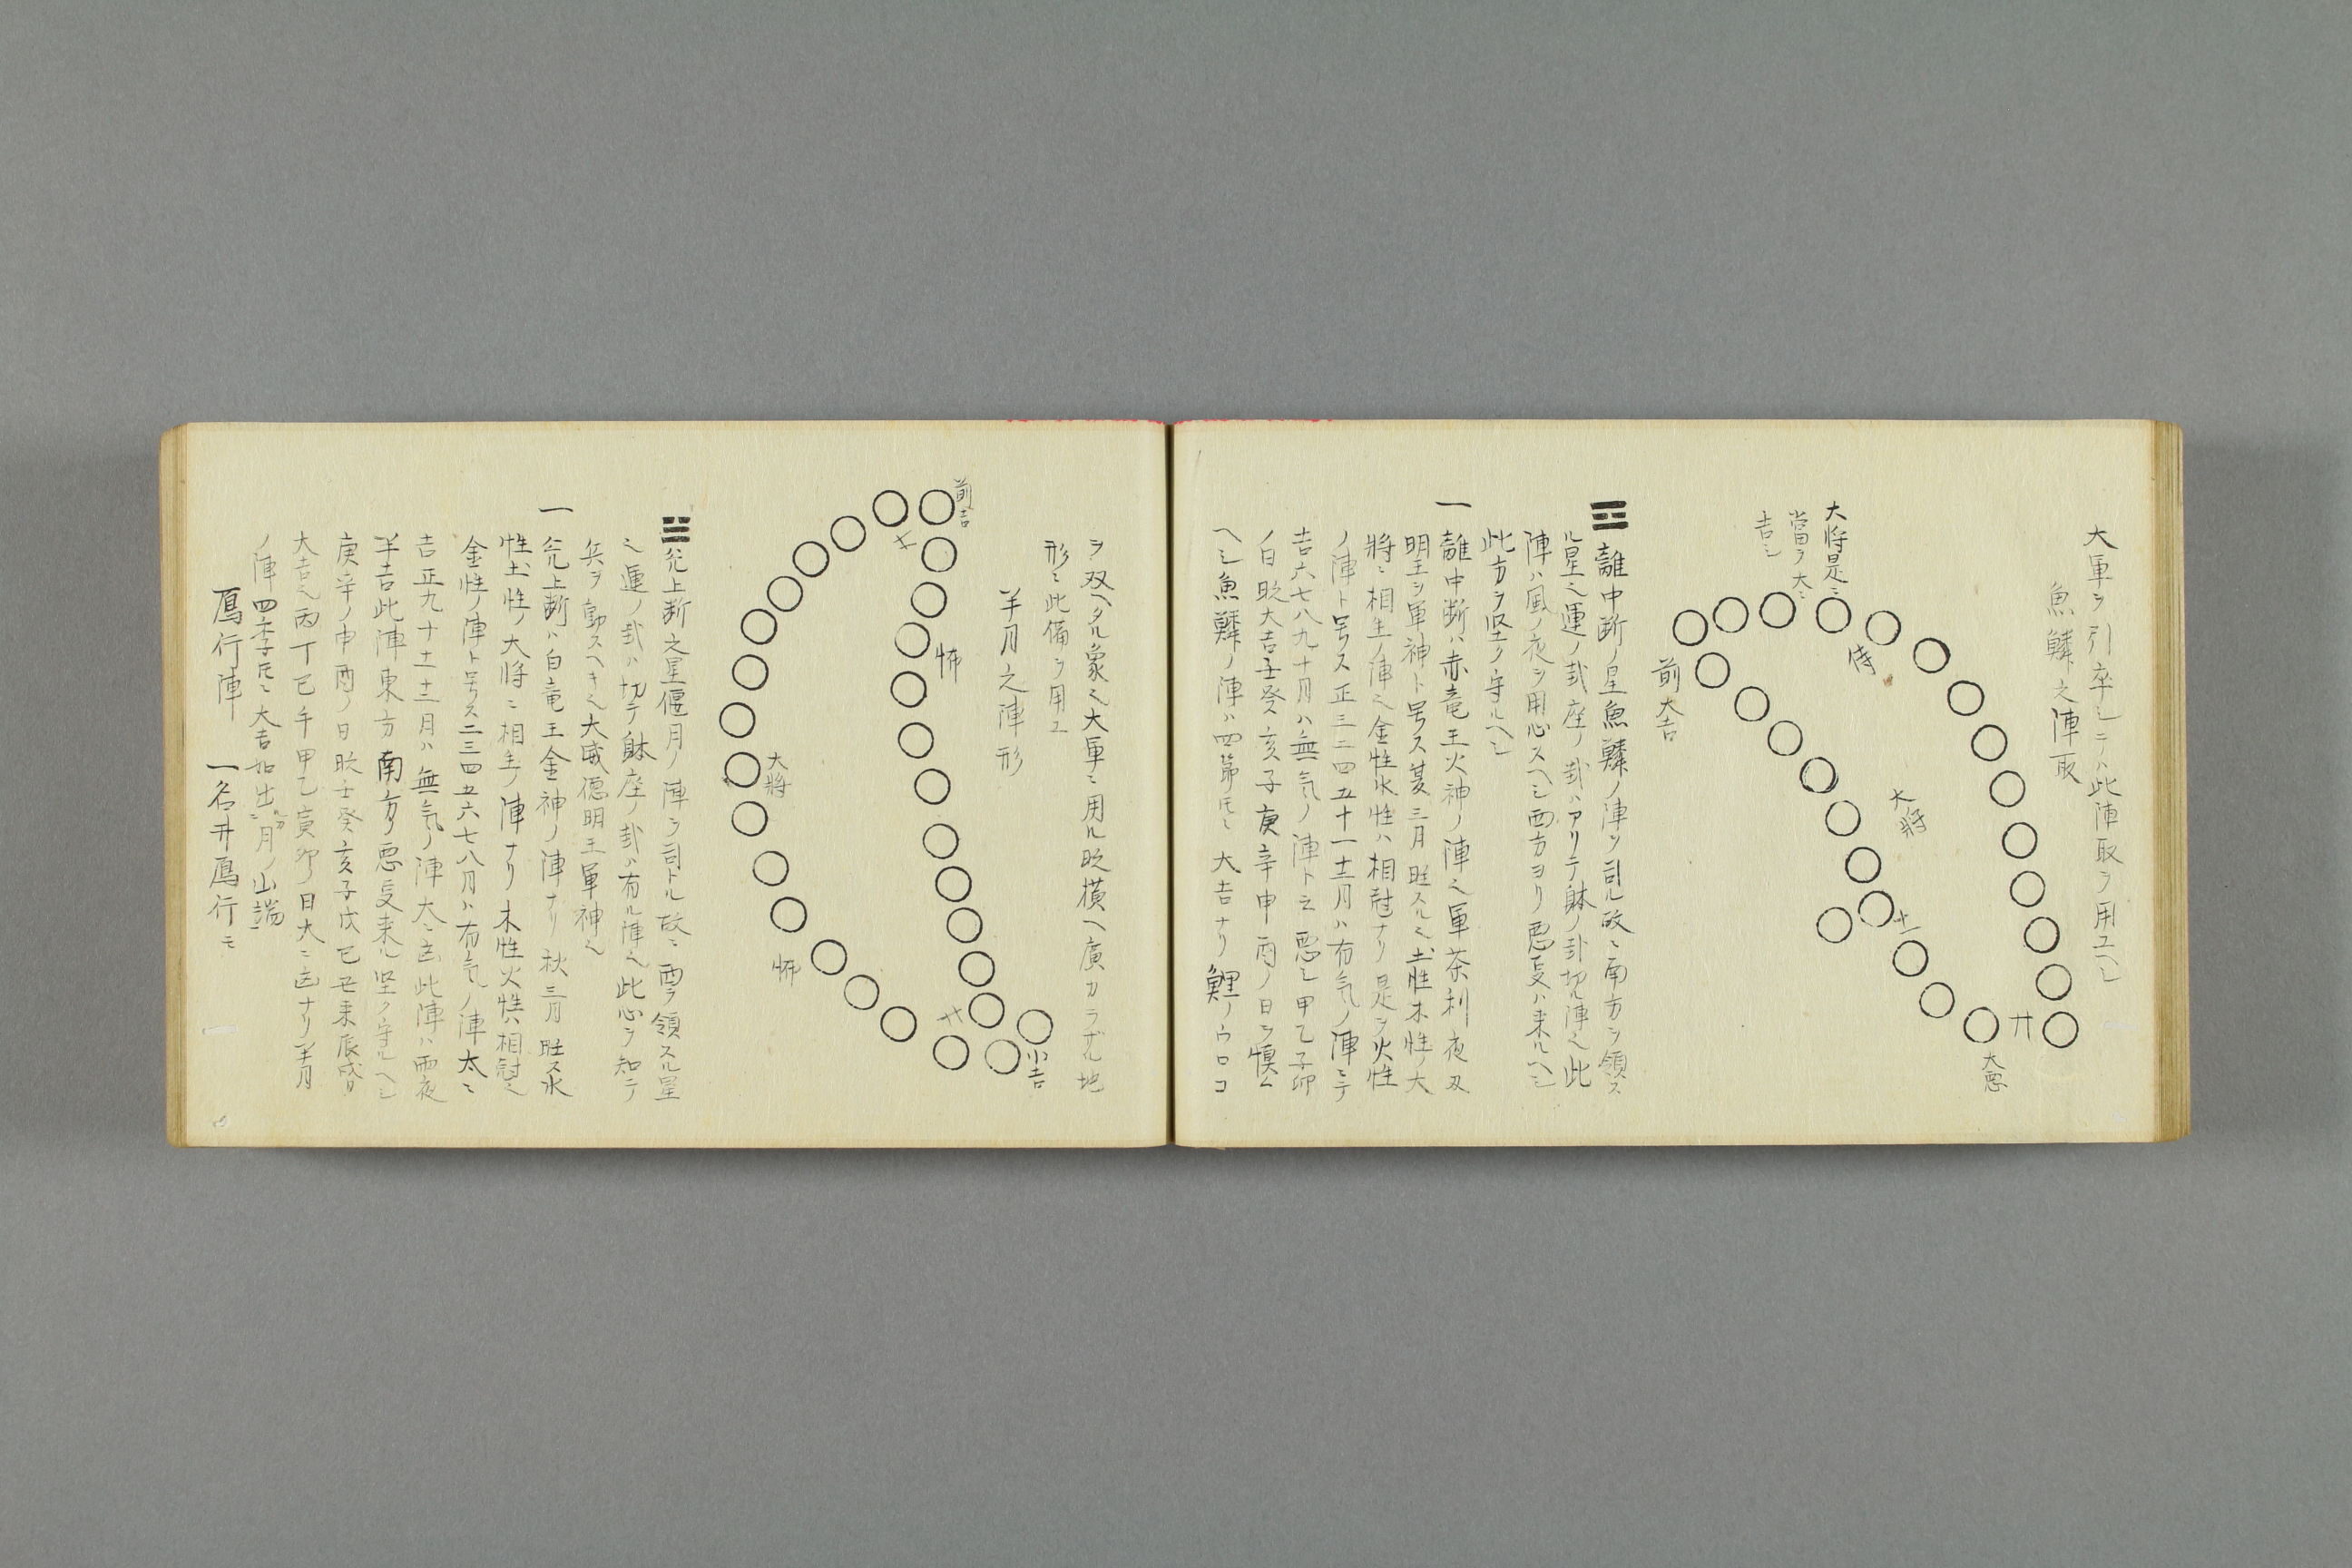 大軍ヲ引卒シテハ此陣取ヲ用エヘシ
魚鱗之陣取
大将是ニ
當ラ大ニ
吉シ
侍
前大吉
大将
十一
廾
大悪
☲離中断ノ星魚鱗ノ陣ヲ司ル故ニ南方ヲ領ス
ル星也運ノ卦座ノ卦ハアリテ躰ノ卦切ル陣也此
陣ハ風ノ夜ヲ用心スヘシ西方ヨリ悪㕝ハ来ルヘシ
此方ヲ堅ク守ルヘシ
一離中断ハ赤竜王火神ノ陣也軍荼利夜叉
明王ヲ軍神ト号ス夏三月旺スル也土性木性ノ大
将ニ相生ノ陣也金性水性ハ相尅ナリ是ヲ火性
ノ陣ト号ス正二三四五十一十二月ハ有気ノ陣ニテ
吉六七八九十月ハ無気ノ陣ト云悪シ甲乙子卯
ノ日取大吉壬癸亥子庚辛申酉ノ日ヲ慎ム
ヘシ魚鱗ノ陣ハ四節氏ニ大吉ナリ鯉ノウロコ
ヲ双ヘタル象也大軍ニ用ル取横ヘ廣カラザル地
形ニ此備ヲ用エ
半月之陣形
前吉
十
怖
大将
怖
十
小吉
☱兊上断之星偃月ノ陣ヲ司トル故ニ西ヲ領スル星
也運ノ卦ハ切テ躰座ノ卦ハ有ル陣也此心ヲ知テ
兵ヲ動スヘキ也大威徳明王軍神也
一兊上断ハ白竜王金神ノ陣ナリ秋三月旺ス水
性土性ノ大将ニ相生ノ陣ナリ木性火性ハ相尅也
金性ノ陣ト号ス二三四五六七八月ハ有気ノ陣大ニ
吉正九十十一十二月ハ無気ノ陣大ニ凶此陣ハ雨夜
半吉此陣東方南方ヨリ悪㕝来ル堅ク守ルヘシ
庚辛ノ申酉ノ日取壬癸亥子戊己丑未辰戌日
大吉也丙丁巳午甲乙寅卯ノ日大ニ凶ナリ半月
ノ陣四季氏ニ大吉如出月ノ山端
鳫行陣　一名井鳫行モ